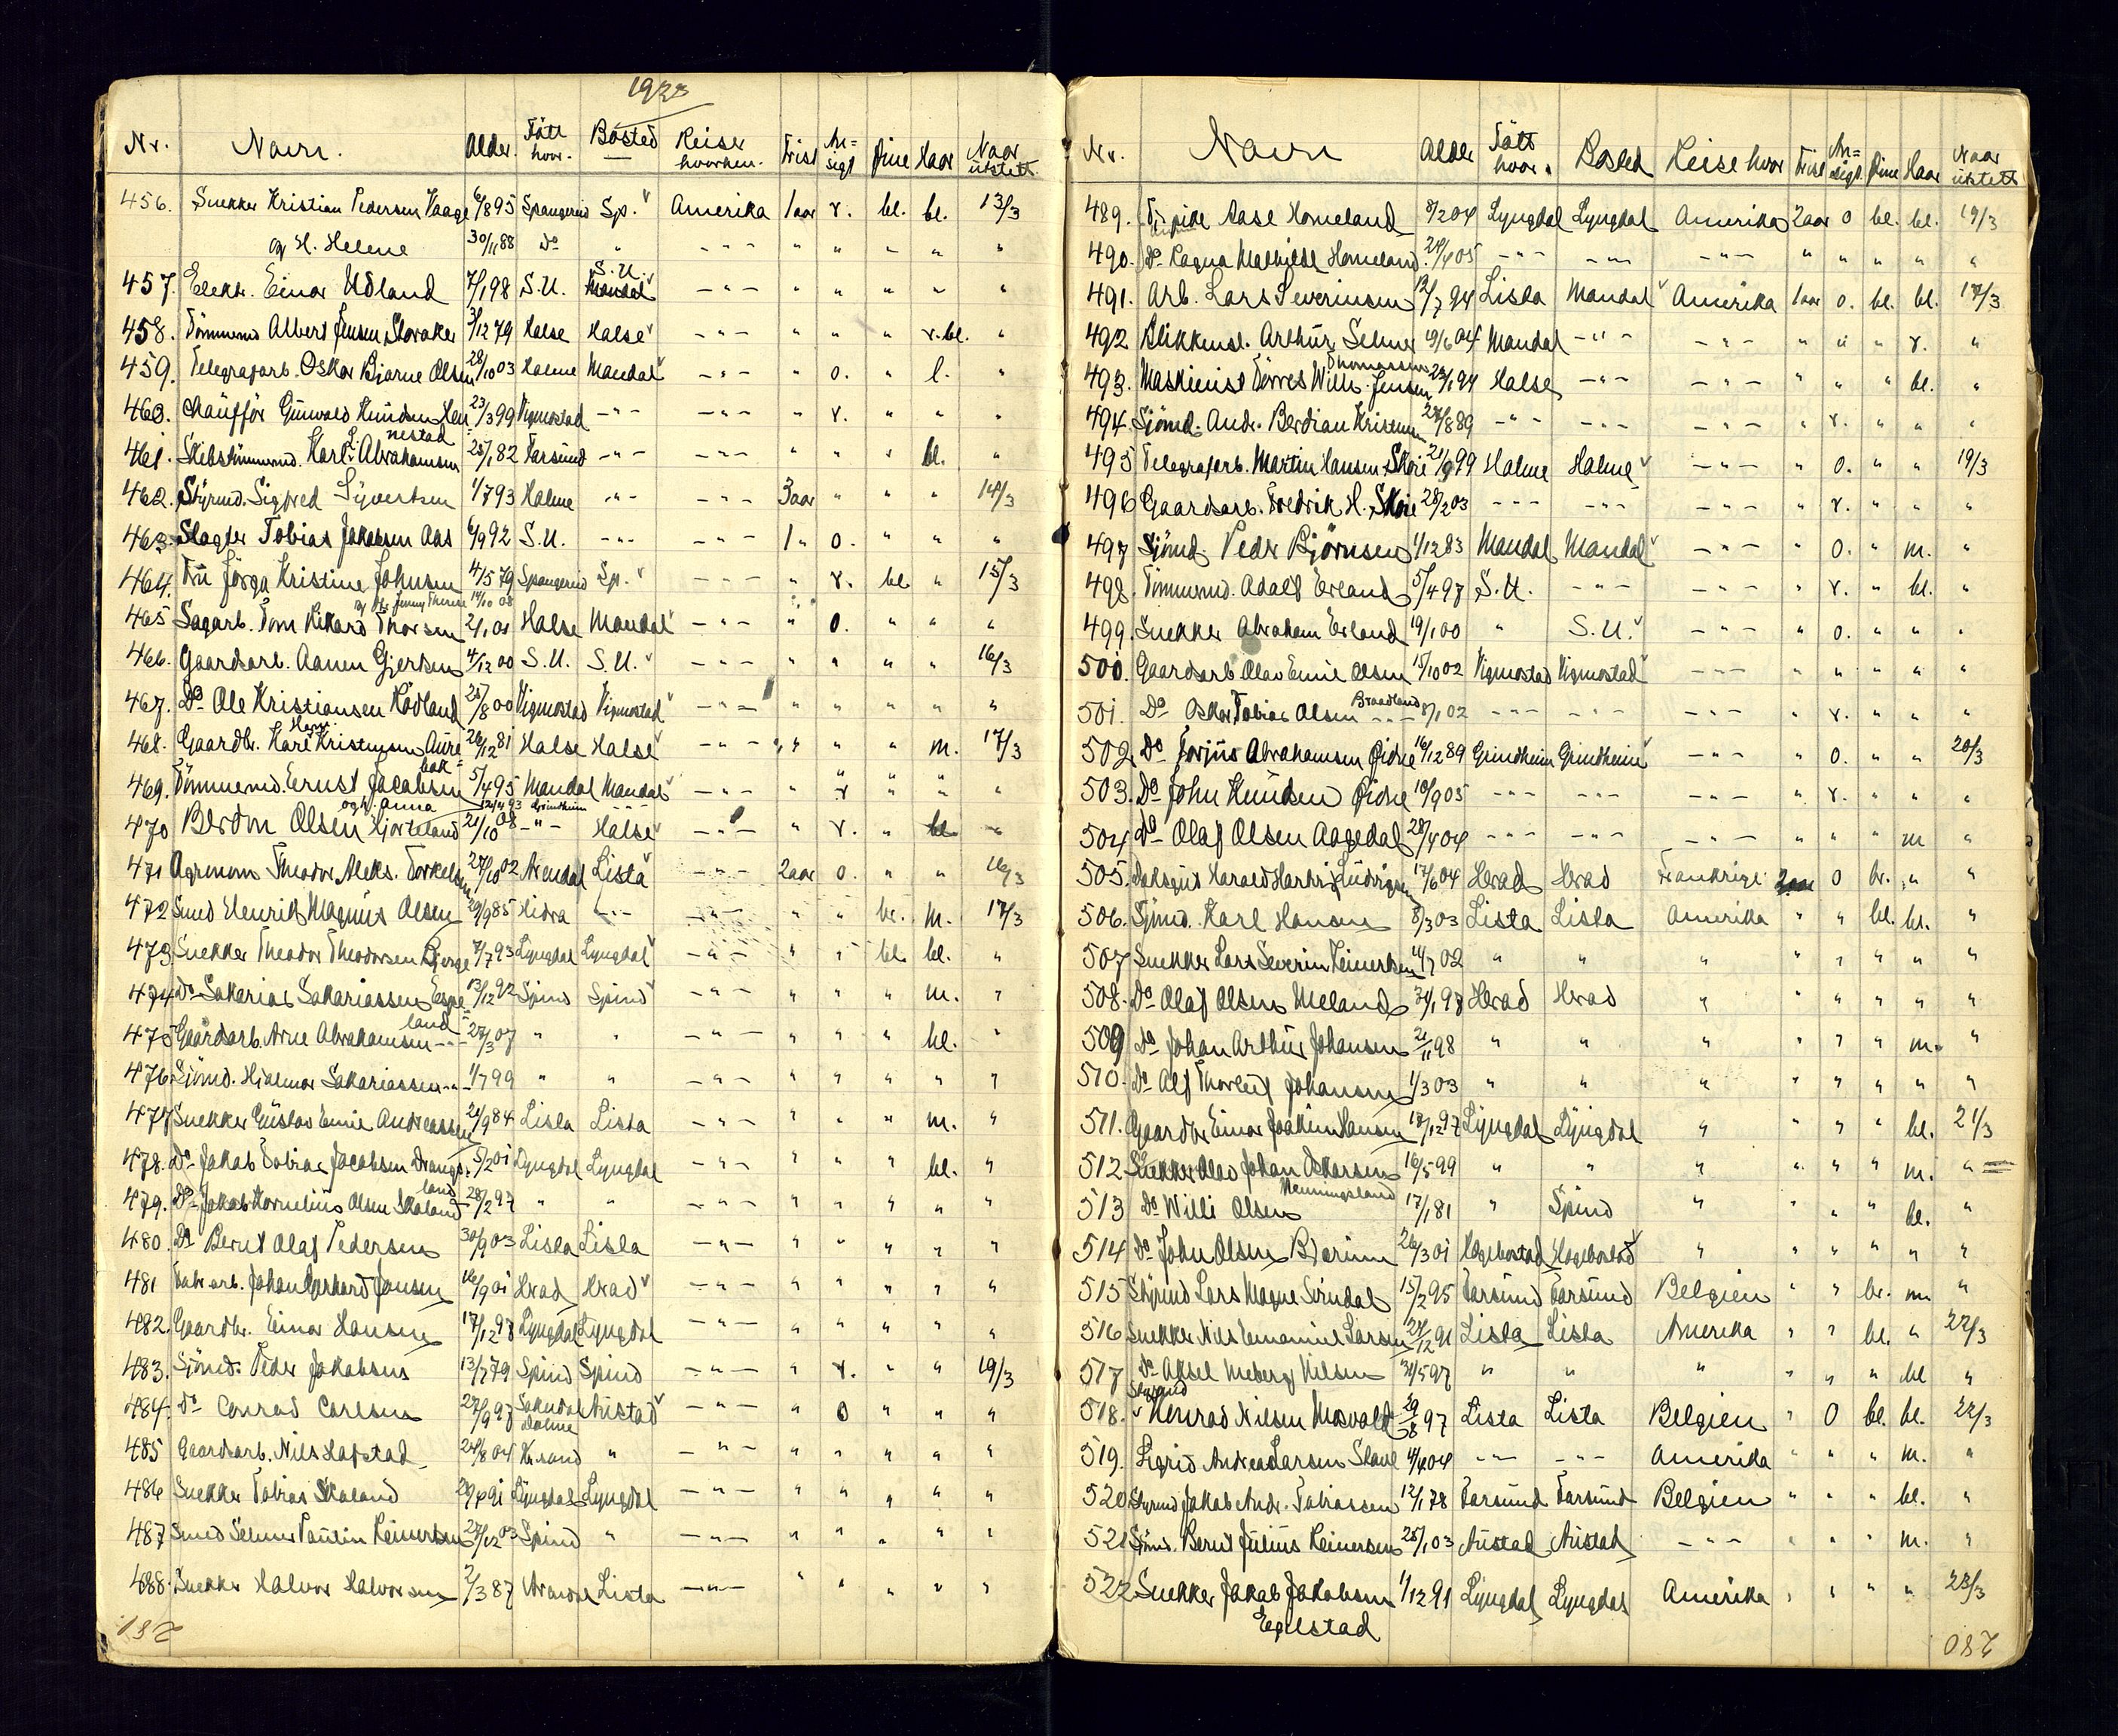 1923
Nr. Navn. Alder. Fött hvor. Bosted Reise hvorhen. Frist An=sigt Öine Haar Naar utstett.
456. Snekker Kristian Pedersen Vaage 6/8 95 Spangereid Sp. Amerika 1 aar r. bl. bl. 13/3
og H. Helene 30/11 88 Do " -"- " " " " "
457. Elektr. Einar Udland 7/1 98 S.U. S.U. -"- " " " " "
458. Tömmermd. Albert Jensen 3/12 79 Halse Halse -"- " " " r.bl. "
459. Telegrafarb. Oskar Bjarne Olsen 28/10 03 Halme Mandal -"- " o. " l. "
460. Chaufför Gunvald Knudsen Hen=nestad 23/3 99 Vigmostad -"- -"- " r. " " "
461. Skibstömmermd. Karl L. Abrahamsen 25/1 82 Farsund -"- -"- " " " bl. "
462. Styrmd. Sigfred Syvertsen 1/7 93 Halme -"- -"- 3 aar " " " 14/3
463. Slagter Tobias Jakobsen Aas 6/9 92 S.U. -"- -"- 1 " o. " " "
464. Fru Jörga Kristine Johnsen 4/5 79 Spangereid Sp. -"- " r. bl. " 15/3
og Jenny Therese 14/10 08
465 Sagarb. Tom Rikard Thorsen 2/1 01 Halse Mandal -"- " o. " " "
466. Gaardsarb. Aanen Gjertsen 4/12 00 S.U. S.U. -"- " " " " 16/3
467. Do Ole Kristiansen Rödland 25/8 00 Vigmostad Vigmostad -"- " " " " "
468. Gaardbr. Karl Hans Kristensen Aure=bak 26/12 81 Halse Halse -"- " " " m. 17/3
469. Tömmermd. Ernst Jacobsen 5/4 95 Mandal Mandal -"- " r " " "
og H. Anna 12/4 93 Grindheim
470 Berdon Olsen Hjorteland 21/10 08 -"- Halse -"- " r. " bl. "
471 Agronom Theodor Aleks. Torkelsen 27/10 02 Arendal Lista -"- 2 aar o. " " 16/3
472 Smed Henrik Magnus Olsen 29/9 85 Hidra -"- -"- " " br. m. 17/3
473 Snekker Theodor Theodorsen Bjerge 7/7 93 Lyngdal Lyngdal -"- " " bl. bl. "
474 Do Sakarias Sakariassen Espe=land 13/12 92 Spind Spind -"- " " " m. "
475 Gaardsarb. Arne Abrahamsen -"- 27/3 07 " " -"- " " " bl. "
476 Sjömd. Hjalmar Sakariassen -"- 1/7 99 " " -"- " " " " "
477 Snekker Gustav Emil Andreassen 21/9 84 Lista Lista -"- " " " m. "
478. Do Jakob Tobias Jacobsen Drangs=land 5/2 01 Lyngdal Lyngdal -"- " " " bl. "
479. Do Jakob Kornelius Olsen Skaland 28/2 97 " " -"- " " " " "
480. Do Berut Olaf Pedersen 30/9 03 Lista Lista -"- " " " " "
481 Fabr.arb. Johan Gerhard Jensen 16/9 01 Herad Herad -"- " " " " "
482. Gaardbr. Einar Hansen 17/12 97 Lyngdal Lyngdal -"- " " " " "
483. Sjömd. Peder Jakobsen 13/7 79 Spind Spind -"- " r. " " 19/3
484. Do Conrad Carlsen 27/9 97 Austad -"- " o " " "
485 Gaardsarb. Nils Hafstad 24/8 04 Kr.sand " -"- " " " " "
486 Snekker Tobias Skaland 29/4 91 Lyngdal Lyngdal -"- " " " " "
487 Smed Selmer Paulin Reinertsen 27/12 03 Spind " -"- " " " " "
488. Snekker Halvor Halvorsen 2/3 87 Arendal Lista -"- " " " " "
281.
Nr. Navn Alder Fött hvor. Bosted Reise hvor Frist An=sigt Öine Haar Naar utstett
489. Tj.pike Aase Homeland 8/2 04 Lyngdal Lyngdal Amerika 2 aar o bl. bl. 19/3
490. Do Ragna Mathilde Homeland 24/4 05 -"- -"- -"- " " " " "
491. Arb. Lars Severinsen 12/7 94 Lista Mandal Amerika 1 aar o. bl. bl. 17/3
492 Blikkensl. Arthur Selmer 19/6 04 Mandal -"- -"- " " " r. "
493. Maskinist Törres Wilh. Jensen Thomassen 23/1 94 Halse -"- -"- " " " bl. "
494. Sjömd. Andr. Berdian Kristensen 27/8 89 -"- -"- -"- " r. " " "
495 Telegrafarb. Martin Hansen Skoie 21/9 99 Halme Halme -"- " o. " " 19/3
496 Gaardsarb. Fredrik H. Skoie 28/2 03 -"- -"- -"- " r. " " "
497 Sjömd. Peder Björnsen 1/12 83 Mandal Mandal -"- " o. " m. "
498 Tömmermd. Adolf Erland 5/4 97 S.U. -"- -"- " r. " bl. "
499. Snekker Abraham Erland 19/1 00 " S.U. -"- " o. " " "
500. Gaardsarb Olav Emil Olsen 15/10 02 Vigmostad Vigmostad -"- " " " " "
501. Do Oskar Tobias Olsen Braadland 8/1 02 -"- -"- -"- " r. " " "
502 Do Torjus Abrahamsen Eidse 16/12 89 Grindheim Grindheim -"- " o. " " 20/3
503. Do John Knudsen Eidse 10/9 05 -"- -"- -"- " r. " " "
504 Do Olaf Olsen Aagedal 28/4 04 -"- -"- -"- " " " m "
505. Harald Hartvig Ludvigsen 17/6 04 Herad Herad Frankrige 2 aar o br. " "
506. Sjömd. Karl Hansen 8/3 03 Lista Lista Amerika " " bl. bl. "
507 Snekker Lars Severin Reinertsen 11/7 02 " " " " " " " "
508. Do Olaf Olsen Meland 31/1 97 Herad Herad " " " " " "
509 Do Johan Arthur Johansen 21/11 98 " " " " " " m. "
510. Do Alf Thorleif Johansen 1/3 03 " " " " " " " "
511. Gaardbr Einar Joakim Hansen 17/12 97 Lyngdal Lyngdal " " " " bl. 21/3
512 Snekker Olav Johan Oskarsen 16/5 99 " " " " " " m. "
513 Do Willi Olsen Henningsland 17/1 81 " Spind " " " " bl. "
514 Do John Olsen Bjerum 26/3 01 Hægebostad Hægebostad " " " " " "
515 Styrmd Lars Magne Sirndal 15/2 95 Farsund Farsund Belgien " " br. m "
516 Snekker Nils Emanuel Larsen 24/12 91 Lista Lista Amerika " " bl. " 22/3
517 Do Aksel Meberg Nilsen 31/5 97 " " " " " " bl "
518. Styrmd Konrad Nilsen Mosvald 29/8 97 Lista Lista Belgien " o bl. bl. 22/3
519. Sigrid Andrea Larsen Stave 4/4 04 -"- -"- Amerika " " " m. "
520 Styrmd Jakob Andr. Tobiassen 12/1 78 Farsund Farsund Belgien " " " bl. "
521 Sjömd. Berut Julius Reinertsen 25/1 03 Austad Austad -"- " " " m. "
522 Snekker Jakob Jakobsen 1/12 91 Lyngdal Lyngdal Amerika " " " " 23/3
Egelstad
280